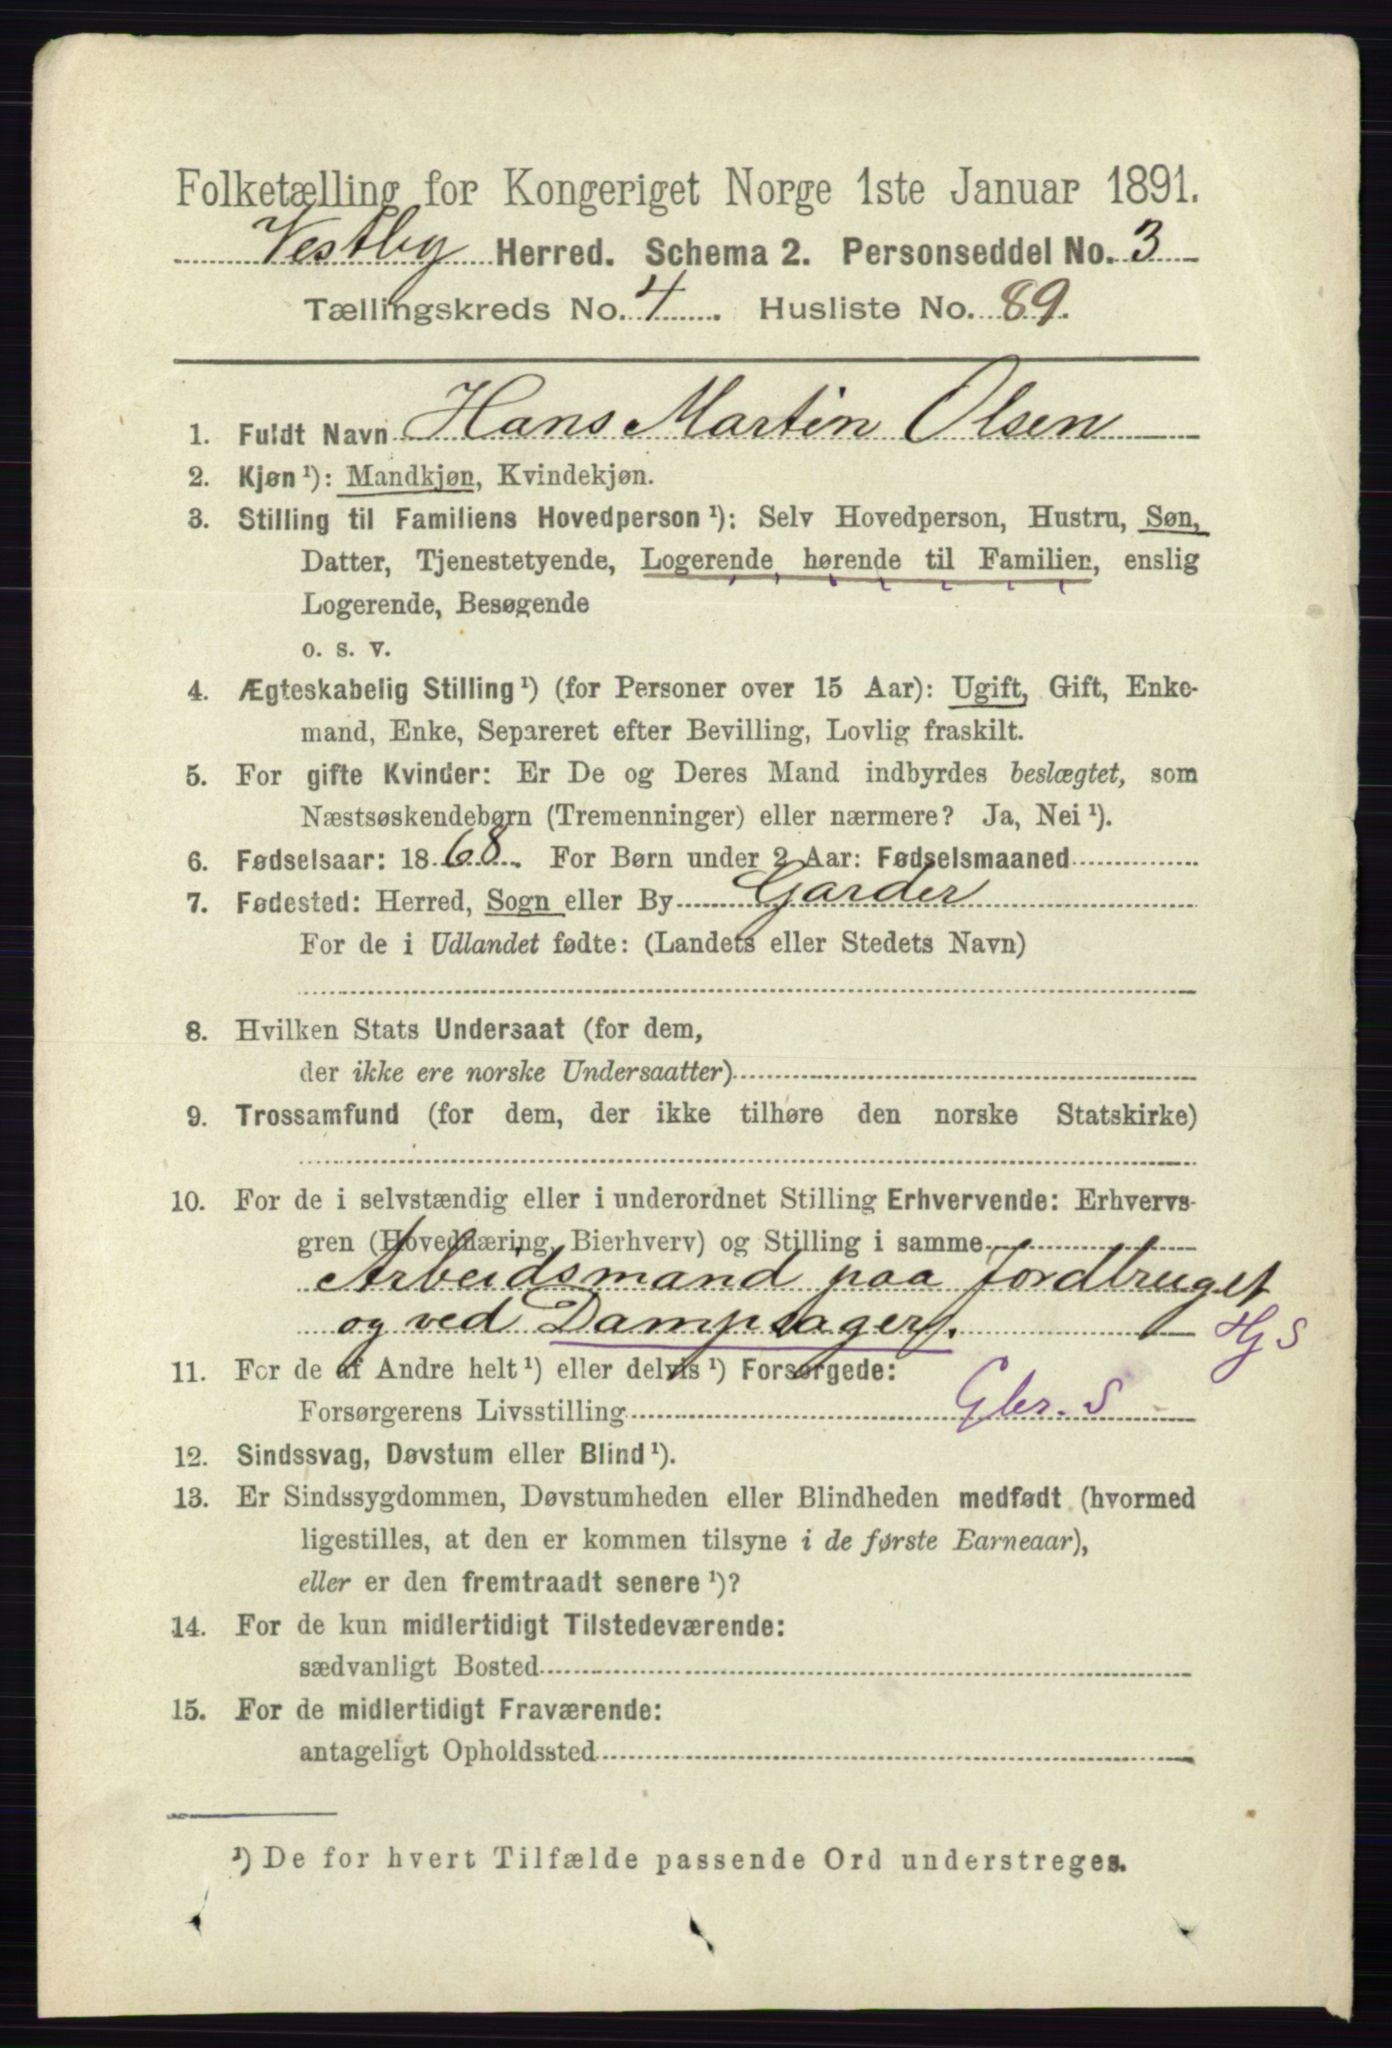 Folketælling for Kongeriget Norge 1ste Januar 1891.
Vestby Herred. Schema 2. Personseddel No. 3
Tællingskreds No. 4. Husliste No. 89.
1. Fuldt Navn Hans Martin Olsen
2. Kjøn ¹): Mandkjøn, Kvindekjøn.
3. Stilling til Familiens Hovedperson ¹): Selv Hovedperson, Hustru, Søn,
Datter, Tjenestetyende, Logerende hørende til Familien, enslig
Logerende, Besøgende
o. s. v.
4. Ægteskabelig Stilling ¹) (for Personer over 15 Aar): Ugift, Gift, Enke-
mand, Enke, Separeret efter Bevilling, Lovlig fraskilt.
5. For gifte Kvinder: Er De og Deres Mand indbyrdes beslægtet, som
Næstsøskendebørn (Tremenninger) eller nærmere? Ja, Nei ¹).
6. Fødselsaar: 1868. For Børn under 2 Aar: Fødselsmaaned
7. Fødested: Herred, Sogn eller By Garder
For de i Udlandet fødte: (Landets eller Stedets Navn)
8. Hvilken Stats Undersaat (for dem,
der ikke ere norske Undersaatter)
9. Trossamfund (for dem, der ikke tilhøre den norske Statskirke)
10. For de i selvstændig eller i underordnet Stilling Erhvervende: Erhvervs-
gren (Hovednæring, Bierhverv) og Stilling i samme
Arbeidsmand paa Jordbruget
og ved Dampsagen. Hj S
11. For de af Andre helt ¹) eller delvis ¹) Forsørgede:
Forsørgerens Livsstilling Gbr. S
12. Sindssvag, Døvstum eller Blind ¹).
13. Er Sindssygdommen, Døvstumheden eller Blindheden medfødt (hvormed
ligestilles, at den er kommen tilsyne i de første Barneaar),
eller er den fremtraadt senere ¹)?
14. For de kun midlertidigt Tilstedeværende:
sædvanligt Bosted
15. For de midlertidigt Fraværende:
antageligt Opholdssted
¹) De for hvert Tilfælde passende Ord understreges.